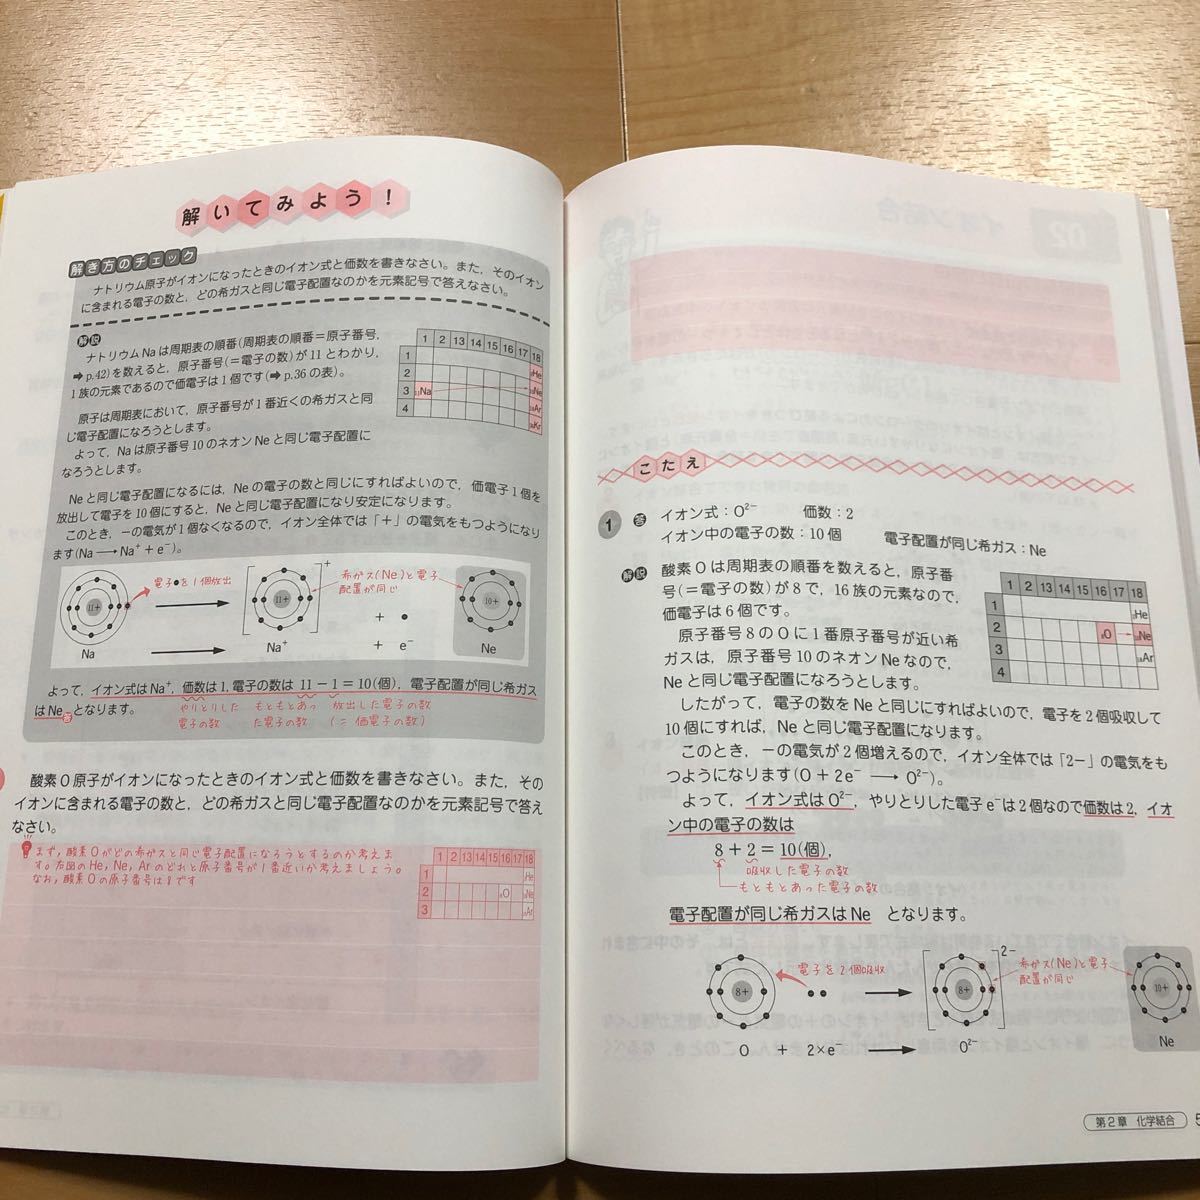 解いてみよう！
解き方のチェック
ナトリウム原子がイオンになったときのイオン式と価数を書きなさい。また，そのイオン
に含まれる電子の数と，どの希ガスと同じ電子配置なのかを元素記号で答えなさい。
解説
ナトリウムNaは周期表の順番(周期表の順番＝原子番号，
➡p.42)を数えると，原子番号(＝電子の数)が11とわかり，
1族の元素であるので価電子は1個です(➡p.36の表)。
原子は周期表において，原子番号が1番近くの希ガスと同
じ電子配置になろうとします。
よって，Naは原子番号10のネオンNeと同じ電子配置に
なろうとします。
1 2 13 14 15 16 17 18
1 ₂He
2 ₁₀Ne
3 ₁₁Na ₁₈Ar
4 ₃₆Kr
Neと同じ電子配置になるには，Neの電子の数と同じにすればよいので，価電子1個を
放出して電子を10個にすると，Neと同じ電子配置になり安定になります。
このとき，－の電気が1個なくなるので，イオン全体では「＋」の電気をもつようになり
ます(Na ⟶ Na⁺ + e⁻)。
電子●を1個放出
希ガス(Ne)と電子
配置が同じ
11+ 11+ + 10+
Na Na⁺ + e⁻ Ne
よって，イオン式はNa⁺，価数は1，電子の数は 11－1＝10(個)，電子配置が同じ希ガス
はNe答となります。
やりとりした もともとあっ 放出した電子の数
電子の数 た電子の数 (＝価電子の数)
酸素O原子がイオンになったときのイオン式と価数を書きなさい。また，その
イオンに含まれる電子の数と，どの希ガスと同じ電子配置なのかを元素記号で答え
なさい。
まず，酸素Oがどの希ガスと同じ電子配置になろうとするのか考えま
す。右図のHe，Ne，Arのどれと原子番号が1番近いか考えましょう。
なお，酸素Oの原子番号は8です
1 2 13 14 15 16 17 18
1 ₂He
2 ₈O ₁₀Ne
3 ₁₈Ar
こたえ
1 答 イオン式：O²⁻ 価数：2
イオン中の電子の数：10個 電子配置が同じ希ガス：Ne
解説 酸素Oは周期表の順番を数えると，原子番
号(＝電子の数)が8で，16族の元素なので，
価電子は6個です。
原子番号8のOに1番原子番号が近い希
ガスは，原子番号10のネオンNeなので，
Neと同じ電子配置になろうとします。
1 2 13 14 15 16 17 18
1 ₂He
2 ₈O ₁₀Ne
3 ₁₈Ar
4
したがって，電子の数をNeと同じにすればよいので，電子を2個吸収して
10個にすれば，Neと同じ電子配置になります。
このとき，－の電気が2個増えるので，イオン全体では「2－」の電気をも
つようになります(O + 2e⁻ ⟶ O²⁻)。
よって，イオン式はO²⁻，やりとりした電子e⁻は2個なので価数は2，イオ
ン中の電子の数は
8＋2＝10(個)，
吸収した電子の数
もともとあった電子の数
電子配置が同じ希ガスはNe となります。
電子を2個吸収
希ガス(Ne)と電子
配置が同じ
8+ 8+ 2- 10+
O + 2×e⁻ O²⁻ Ne
第2章 化学結合